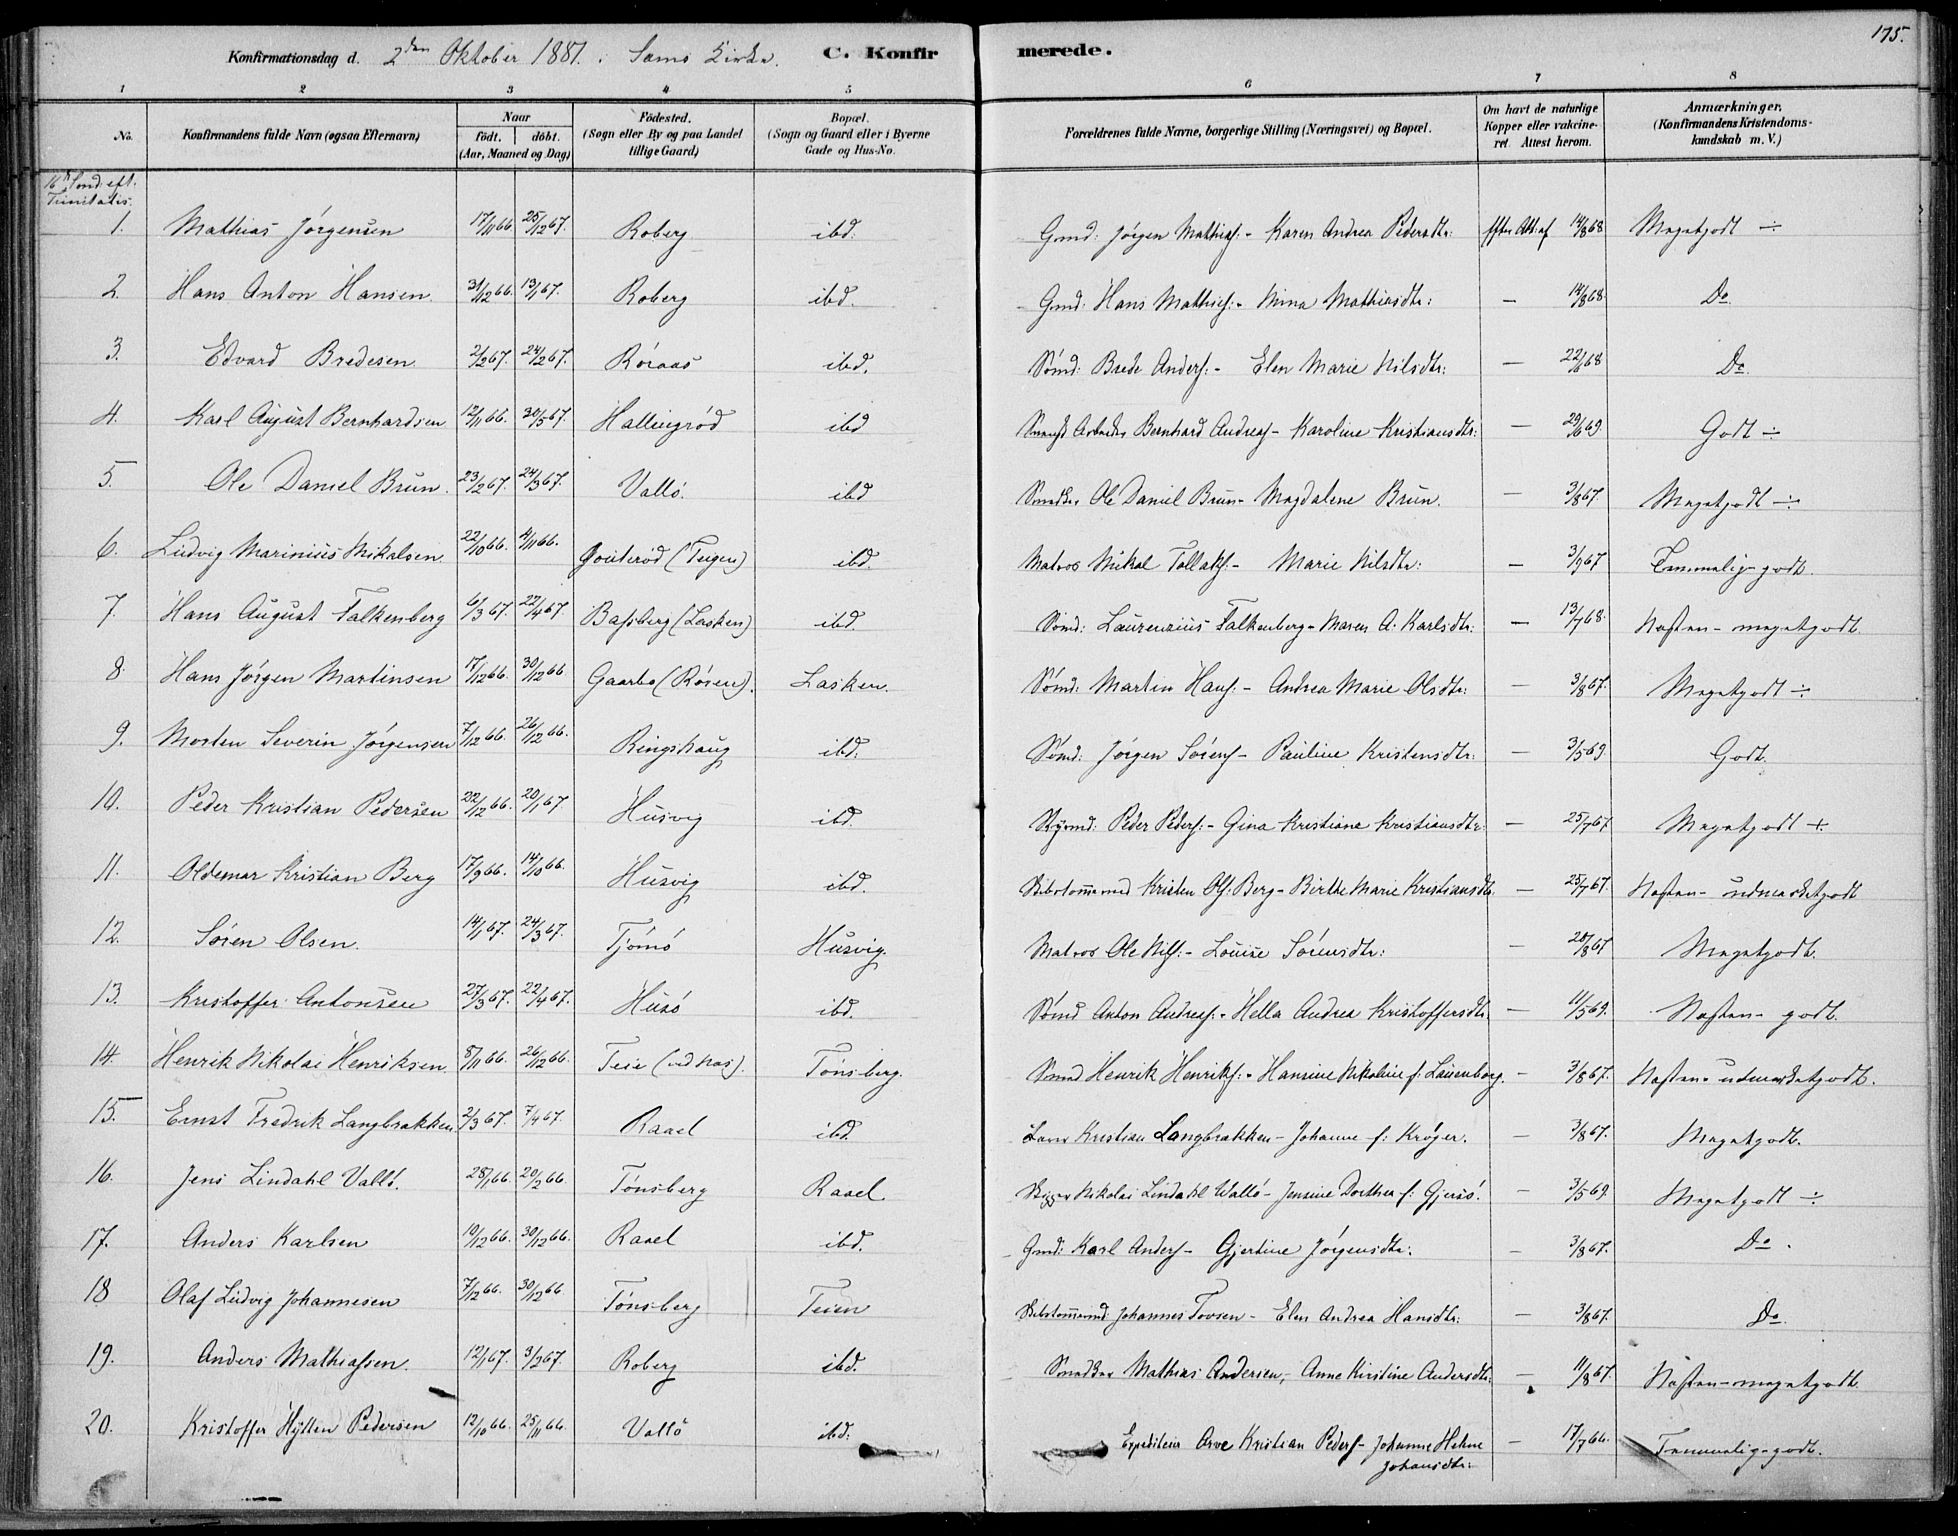 175.
Konfirmationsdag d. 2den Oktober 1881. i Sems Kirke. C. Konfirmerede.
1 2 3 4 5 6 7 8
No. Konfirmandens fulde Navn (ogsaa Efternavn) Naar födt. döbt. (Aar, Maaned og Dag) Födested. (Sogn eller By og paa Landet tillige Gaard) Bopæl. (Sogn og Gaard eller i Byerne Gade og Hus-No. Forældrenes fulde Navne, borgerlige Stilling (Næringsvei) og Bopæl. Om havt de naturlige Kopper eller vakcineret. Attest herom. Anmærkninger. (Konfirmandens Kristendomskundskab m. V.)
16 Sönd: eft. Trinitatis.
1. Mathias Jörgensen 17/11 66 25/12 67. Roberg ibd: Gmd: Jörgen Mathiss:- Karen Andrea Pedersdtr: efter Att: af 14/8 68 Megetgodt ÷
2. Hans Anton Hansen. 31/12 66. 13/1 67. Roberg ibd. Gmd: Hans Mathiss:- Mina Mathiasdtr: — 14/8 68. Do.
3. Edvard Bredesen. 2/2 67. 24/2 67. Röraas ibd. Sömd: Brede Anders:- Elen Marie Nilsdtr: — 22/6 68 Do.
4. Karl August Bernhardsen 12/11 66. 30/5 67. Hallingröd ibd Arbeider Bernhard Andreas- Karoline Kristiansdtr: — 29/6 69 Godt ÷
5. Ole Daniel Brun. 23/2 67. 24/3 67. Vallö. ibd Snedker Ole Daniel Brun- Magdalene Brun. — 3/8 67. Megetgodt ÷
6. Ludvig Marinius Mikalsen. 22/10 66. 4/11 66. Gouteröd (Teigen) ibd. Matros Mikal Tollaks:- Marie Nilsdtr: — 3/9 67 Temmelig-godt.
7. Hans August Falkenberg 6/3 67. 22/4 67 Basberg (Lasken) ibd. Sömd: Laurenzius Falkenberg- Maren A. Karlsdtr: — 13/7 68. Næsten- megetgodt.
8. Hans Jörgen Martinsen 17/12 66. 30/12 66 Gaarbo (Rösen). Lasken. Sömd: Martin Hans:- Andrea Marie Olsdtr: — 3/8 67. Megetgodt ÷
9. Morten Severin Jörgensen 7/12 66. 26/12 66. Ringshaug ibd: Sömd: Jörgen Sörens- Pauline Kristensdtr: — 3/5 69. Godt.
10. Peder Kristian Pedersen 22/12 66. 20/1 67. Husvig ibd. Peder Peders:- Gina Kristiane Kristiansdtr: — 25/7 67. Megetgodt +.
11. Oldemar Kristian Berg 17/9 66. 14/10 66. Husvig ibd. Skibstömmermd Kristen Ols: Berg- Birthe Marie Kristiansdtr. — 25/7 67. Næsten- udmærketgodt
12. Sören Olsen. 14/1 67. 24/3 67. Tjömö Husvig. Matros Ole Nils:- Louise Sörensdtr: — 20/8 67 Megetgodt.
13. Kristoffer Antonsen 27/3 67. 22/4 67. Husö ibd. Sömd Anton Andreas:- Hella Andrea Kristoffersdtr. — 11/5 69. Næsten- godt.
14. Henrik Nikolai Henriksen. 8/11 66. 26/12 66. Teie (ved Næs). Tönsberg. Sömd Henrik Henriks:- Hansine Nikoline f: Lauenborg. - 3/8 67. Næsten- udmærketgodt.
15. Ernst Fredrik Langbrækken 2/3 67. 7/4 67. Raael ibd. Kristian Langbrækken- Johanne f: Kröger. - 3/8 67. Megetgodt.
16. Jens Lindahl Vallö. 28/1 66. 20/2 66. Tönsberg Raael. Skipper Nikolai Lindahl Wallö- Jensine Dorthea f: Gjersö. - 3/5 69. Megetgodt ÷
17. Anders Karlsen 10/12 66. 30/12 66. Raael ibd. Gmd: Karl Anders- Gjertine Jörgensdtr. - 3/8 67. Do.
18 Olaf Ludvig Johannesen 7/12 66. 30/12 66. Tönsberg Teien Skibstömmermd Johannes Tovsen- Elen Andrea Hansdtr: — 3/8 67. Do.
19. Anders Mathiassen. 12/1 67. 3/2 67. Roberg ibd. Snedker Mathias Andersen,- Anne Kirstine Andersdtr: — 11/8 67. Næsten- megetgodt.
20. Kristoffer Hytten Pedersen 12/10 66. 25/11 66. Vallö ibd: Expediteur Arve Kristian Peders- Johanne Helene Johansdtr: — 17/7 66. Temmelig-godt.